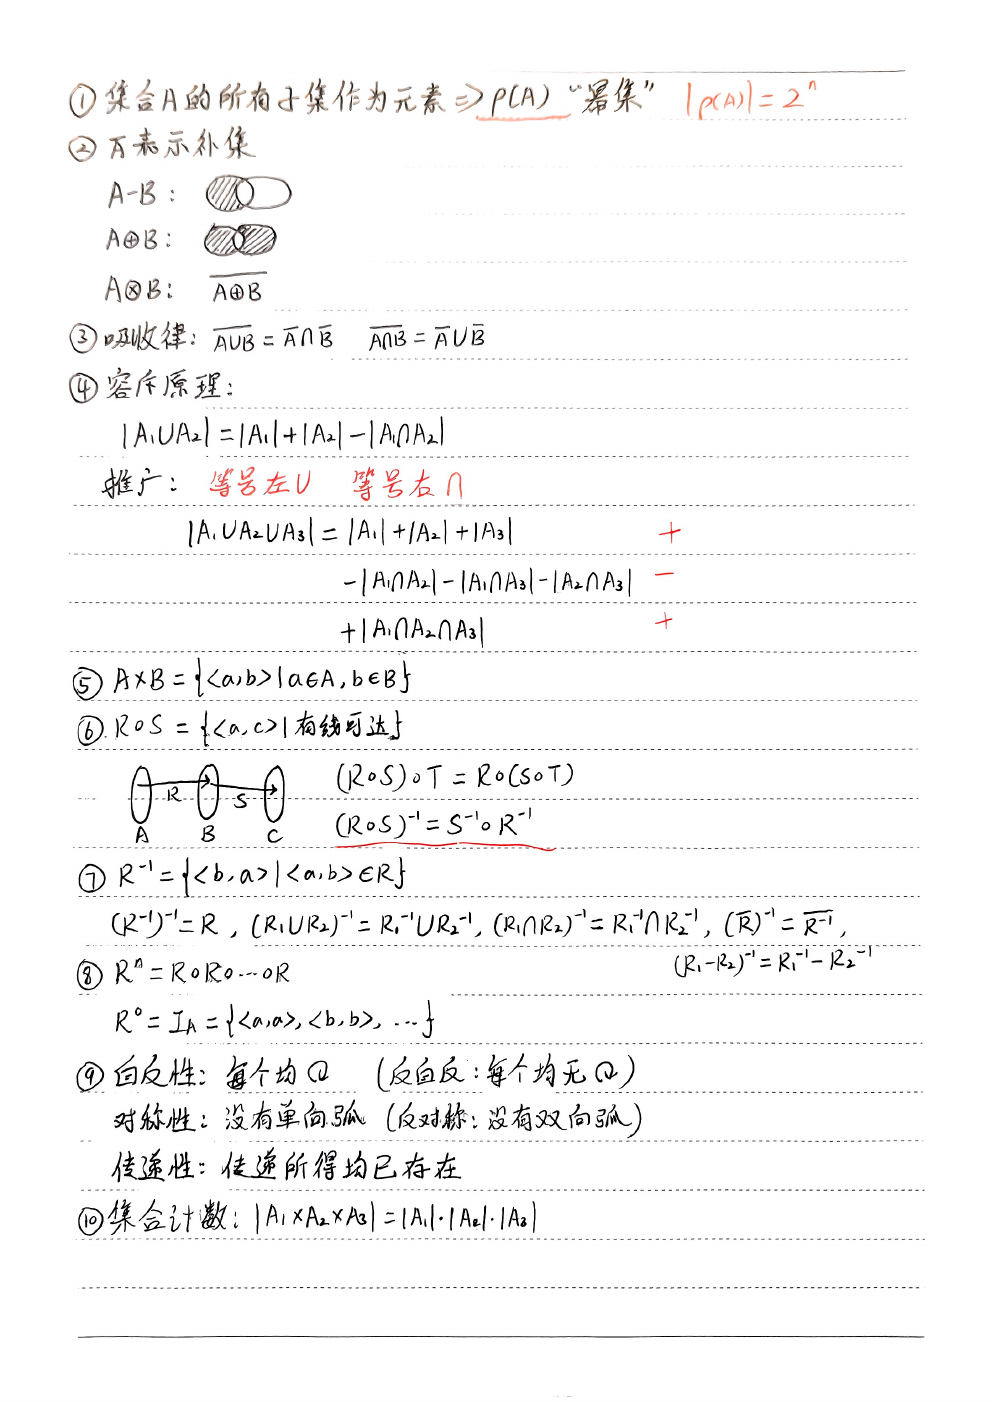 ① 集合A的所有子集作为元素 => ρ(A) “幂集” |ρ(A)| = 2ⁿ
② A̅表示补集
A-B:
A⊕B:
A⊗B: A̅⊕̅B̅
③ 吸收律: A̅∪̅B̅ = A̅∩B̅ A̅∩̅B̅ = A̅∪B̅
④ 容斥原理:
|A₁∪A₂| = |A₁|+|A₂|-|A₁∩A₂|
推广: 等号左∪ 等号右∩
|A₁∪A₂∪A₃| = |A₁|+|A₂|+|A₃| +
-|A₁∩A₂|-|A₁∩A₃|-|A₂∩A₃| -
+|A₁∩A₂∩A₃| +
⑤ A×B = {<a,b>|a∈A, b∈B}
⑥. R∘S = {<a,c>|有线可达}
R S
A B C
(R∘S)∘T = R∘(S∘T)
(R∘S)⁻¹ = S⁻¹∘R⁻¹
⑦ R⁻¹ = {<b,a>|<a,b>∈R}
(R⁻¹)⁻¹ = R, (R₁∪R₂)⁻¹ = R₁⁻¹∪R₂⁻¹, (R₁∩R₂)⁻¹ = R₁⁻¹∩R₂⁻¹, (R̅)⁻¹ = R̅⁻̅¹̅,
(R₁-R₂)⁻¹ = R₁⁻¹-R₂⁻¹
⑧ Rⁿ = R∘R∘…∘R
R⁰ = I_A = {<a,a>,<b,b>,…}
⑨ 自反性: 每个均 (反自反: 每个均无)
对称性: 没有单向弧 (反对称: 没有双向弧)
传递性: 传递所得均已存在
⑩ 集合计数: |A₁×A₂×A₃| = |A₁|·|A₂|·|A₃|